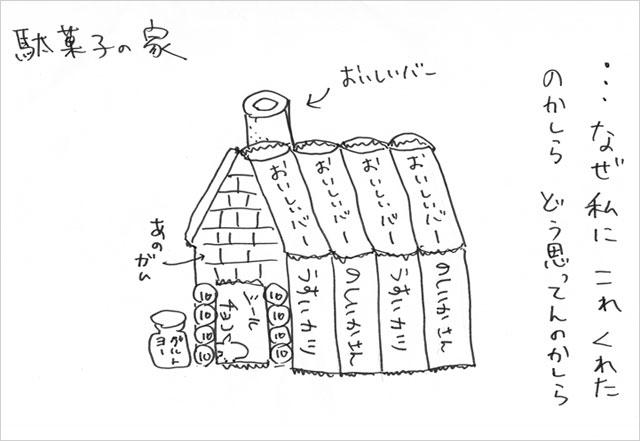 駄菓子の家
…なぜ私にこれくれた
のかしら どう思ってんのかしら
おいしいバー
おいしいバー
おいしいバー
おいしいバー
おいしいバー
あの
ガム
うすいカツ
のしいかさん
うすいカツ
のしいかさん
シール
チョコ
ヨー
グルト